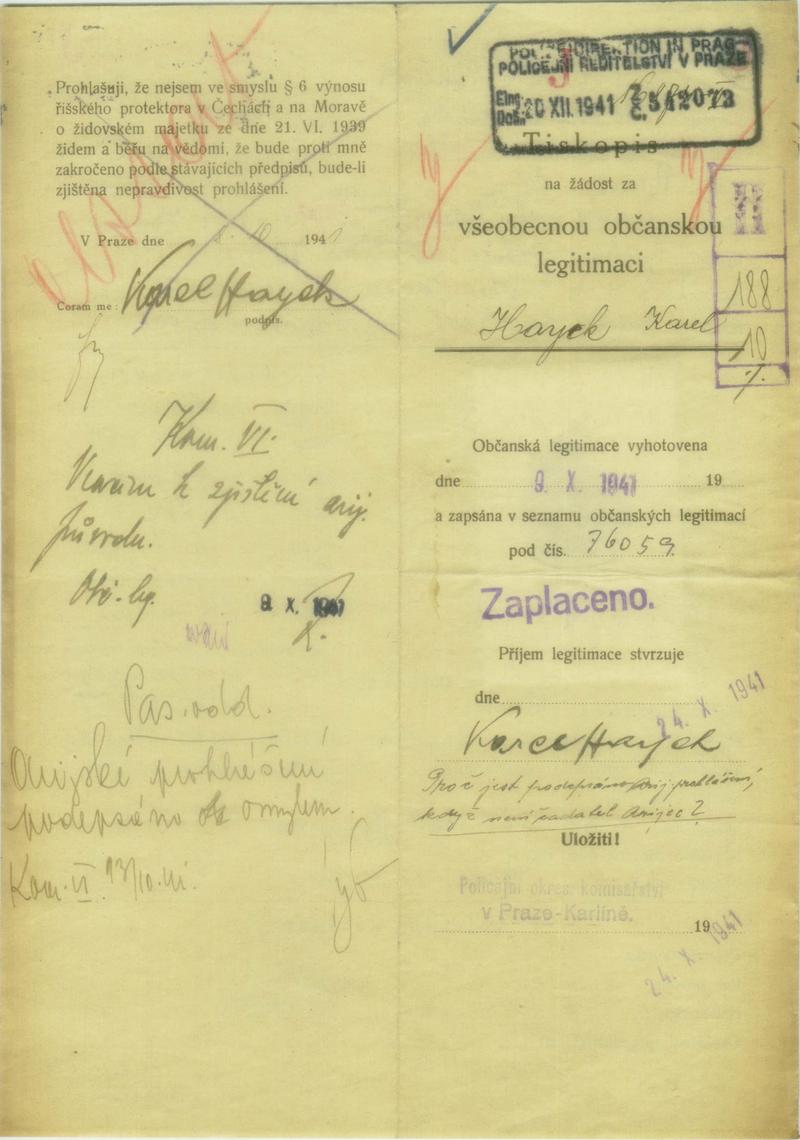 Prohlašuji, že nejsem ve smyslu § 6 výnosu
říšského protektora v Čechách a na Moravě
o židovském majetku ze dne 21. VI. 1939
židem a běru na vědomí, že bude proti mně
zakročeno podle stávajících předpisů, bude-li
zjištěna nepravdivost prohlášení.
V Praze dne 194
Coram me: Karel Hayek
podpis.
Kom. VI.
k zjištění arij.
původu.
Obč. leg.
9 X. 1941
Pas. odd.
Arijské prohlášení
podepsáno omylem.
Kom. VI 13/10.41.
POLIZEIDIREKTION IN PRAG
POLICEJNÍ ŘEDITELSTVÍ V PRAZE
Eing.
Došlo 20 XII. 1941
Č. 542073
Tiskopis
na žádost za
všeobecnou občanskou
legitimaci
Hayek Karel
H
188
10
Občanská legitimace vyhotovena
dne 9 X. 1941 19
a zapsána v seznamu občanských legitimací
pod čís. 76059
Zaplaceno.
Příjem legitimace stvrzuje
dne 24. X. 1941
Karel Hayek
Proč jest podepsáno arij. prohlášení,
když není žadatel Arijec?
Uložiti!
Policejní okres. komisařství
v Praze-Karlíně.
19
24. X. 1941